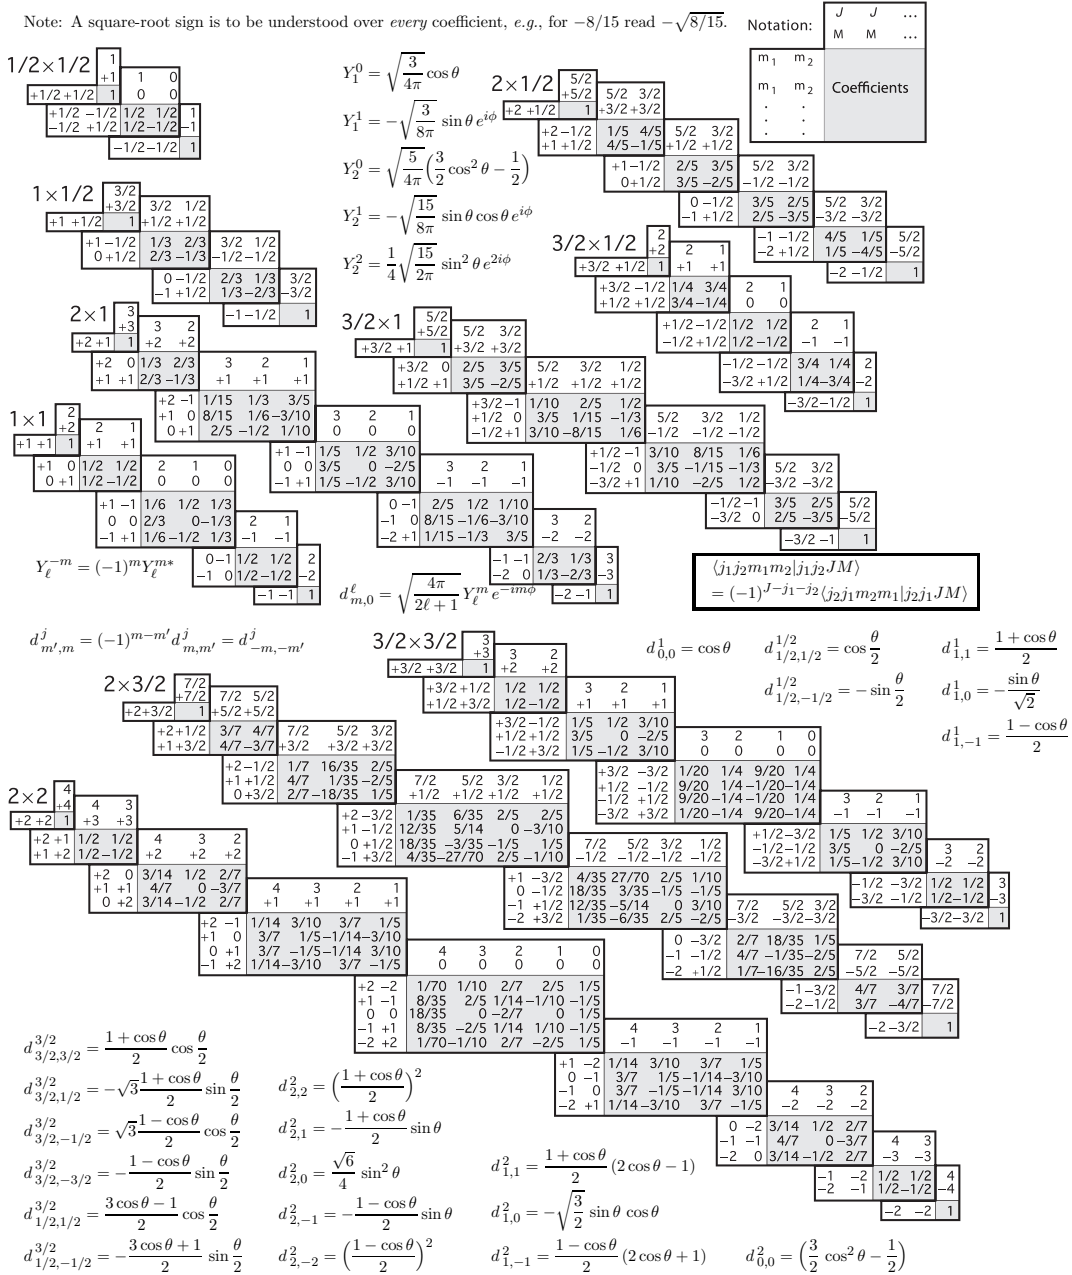 Note: A square-root sign is to be understood over every coefficient, e.g., for −8/15 read −√(8/15).
Notation:
J J ...
M M ...
m₁ m₂
m₁ m₂
. .
. .
. .
Coefficients
1/2×1/2
1
+1 1 0
+1/2 +1/2 1 0 0
+1/2 −1/2 1/2 1/2 1
−1/2 +1/2 1/2 −1/2 −1
−1/2 −1/2 1
Y₁⁰ = √(3/4π) cos θ
Y₁¹ = −√(3/8π) sin θ e^{iϕ}
Y₂⁰ = √(5/4π) (3/2 cos² θ − 1/2)
Y₂¹ = −√(15/8π) sin θ cos θ e^{iϕ}
Y₂² = 1/4 √(15/2π) sin² θ e^{2iϕ}
2×1/2
5/2
+5/2 5/2 3/2
+2 +1/2 1 +3/2 +3/2
+2 −1/2 1/5 4/5 5/2 3/2
+1 +1/2 4/5 −1/5 +1/2 +1/2
+1 −1/2 2/5 3/5 5/2 3/2
0 +1/2 3/5 −2/5 −1/2 −1/2
0 −1/2 3/5 2/5 5/2 3/2
−1 +1/2 2/5 −3/5 −3/2 −3/2
−1 −1/2 4/5 1/5 5/2
−2 +1/2 1/5 −4/5 −5/2
−2 −1/2 1
1×1/2
3/2
+3/2 3/2 1/2
+1 +1/2 1 +1/2 +1/2
+1 −1/2 1/3 2/3 3/2 1/2
0 +1/2 2/3 −1/3 −1/2 −1/2
0 −1/2 2/3 1/3 3/2
−1 +1/2 1/3 −2/3 −3/2
−1 −1/2 1
3/2×1/2
2
+2 2 1
+3/2 +1/2 1 +1 +1
+3/2 −1/2 1/4 3/4 2 1
+1/2 +1/2 3/4 −1/4 0 0
+1/2 −1/2 1/2 1/2 2 1
−1/2 +1/2 1/2 −1/2 −1 −1
−1/2 −1/2 3/4 1/4 2
−3/2 +1/2 1/4 −3/4 −2
−3/2 −1/2 1
2×1
3
+3 3 2
+2 +1 1 +2 +2
+2 0 1/3 2/3 3 2 1
+1 +1 2/3 −1/3 +1 +1 +1
+2 −1 1/15 1/3 3/5
+1 0 8/15 1/6 −3/10 3 2 1
0 +1 2/5 −1/2 1/10 0 0 0
+1 −1 1/5 1/2 3/10
0 0 3/5 0 −2/5 3 2 1
−1 +1 1/5 −1/2 3/10 −1 −1 −1
0 −1 2/5 1/2 1/10
−1 0 8/15 −1/6 −3/10 3 2
−2 +1 1/15 −1/3 3/5 −2 −2
−1 −1 2/3 1/3 3
−2 0 1/3 −2/3 −3
−2 −1 1
3/2×1
5/2
+5/2 5/2 3/2
+3/2 +1 1 +3/2 +3/2
+3/2 0 2/5 3/5 5/2 3/2 1/2
+1/2 +1 3/5 −2/5 +1/2 +1/2 +1/2
+3/2 −1 1/10 2/5 1/2
+1/2 0 3/5 1/15 −1/3 5/2 3/2 1/2
−1/2 +1 3/10 −8/15 1/6 −1/2 −1/2 −1/2
+1/2 −1 3/10 8/15 1/6
−1/2 0 3/5 −1/15 −1/3 5/2 3/2
−3/2 +1 1/10 −2/5 1/2 −3/2 −3/2
−1/2 −1 3/5 2/5 5/2
−3/2 0 2/5 −3/5 −5/2
−3/2 −1 1
1×1
2
+2 2 1
+1 +1 1 +1 +1
+1 0 1/2 1/2 2 1 0
0 +1 1/2 −1/2 0 0 0
+1 −1 1/6 1/2 1/3
0 0 2/3 0 −1/3 2 1
−1 +1 1/6 −1/2 1/3 −1 −1
0 −1 1/2 1/2 2
−1 0 1/2 −1/2 −2
−1 −1 1
Y_ℓ^{−m} = (−1)^m Y_ℓ^{m*}
d^ℓ_{m,0} = √(4π/(2ℓ+1)) Y_ℓ^m e^{−imϕ}
⟨j₁j₂m₁m₂|j₁j₂JM⟩
= (−1)^{J−j₁−j₂}⟨j₂j₁m₂m₁|j₂j₁JM⟩
d^j_{m′,m} = (−1)^{m−m′} d^j_{m,m′} = d^j_{−m,−m′}
3/2×3/2
3
+3 3 2
+3/2 +3/2 1 +2 +2
+3/2 +1/2 1/2 1/2 3 2 1
+1/2 +3/2 1/2 −1/2 +1 +1 +1
+3/2 −1/2 1/5 1/2 3/10
+1/2 +1/2 3/5 0 −2/5 3 2 1 0
−1/2 +3/2 1/5 −1/2 3/10 0 0 0 0
+3/2 −3/2 1/20 1/4 9/20 1/4
+1/2 −1/2 9/20 1/4 −1/20 −1/4
−1/2 +1/2 9/20 −1/4 −1/20 1/4 3 2 1
−3/2 +3/2 1/20 −1/4 9/20 −1/4 −1 −1 −1
+1/2 −3/2 1/5 1/2 3/10
−1/2 −1/2 3/5 0 −2/5 3 2
−3/2 +1/2 1/5 −1/2 3/10 −2 −2
−1/2 −3/2 1/2 1/2 3
−3/2 −1/2 1/2 −1/2 −3
−3/2 −3/2 1
d¹_{0,0} = cos θ
d^{1/2}_{1/2,1/2} = cos θ/2
d^{1/2}_{1/2,−1/2} = −sin θ/2
d¹_{1,1} = (1 + cos θ)/2
d¹_{1,0} = −sin θ/√2
d¹_{1,−1} = (1 − cos θ)/2
2×3/2
7/2
+7/2 7/2 5/2
+2 +3/2 1 +5/2 +5/2
+2 +1/2 3/7 4/7 7/2 5/2 3/2
+1 +3/2 4/7 −3/7 +3/2 +3/2 +3/2
+2 −1/2 1/7 16/35 2/5
+1 +1/2 4/7 1/35 −2/5 7/2 5/2 3/2 1/2
0 +3/2 2/7 −18/35 1/5 +1/2 +1/2 +1/2 +1/2
+2 −3/2 1/35 6/35 2/5 2/5
+1 −1/2 12/35 5/14 0 −3/10
0 +1/2 18/35 −3/35 −1/5 1/5 7/2 5/2 3/2 1/2
−1 +3/2 4/35 −27/70 2/5 −1/10 −1/2 −1/2 −1/2 −1/2
+1 −3/2 4/35 27/70 2/5 1/10
0 −1/2 18/35 3/35 −1/5 −1/5
−1 +1/2 12/35 −5/14 0 3/10 7/2 5/2 3/2
−2 +3/2 1/35 −6/35 2/5 −2/5 −3/2 −3/2 −3/2
0 −3/2 2/7 18/35 1/5
−1 −1/2 4/7 −1/35 −2/5 7/2 5/2
−2 +1/2 1/7 −16/35 2/5 −5/2 −5/2
−1 −3/2 4/7 3/7 7/2
−2 −1/2 3/7 −4/7 −7/2
−2 −3/2 1
2×2
4
+4 4 3
+2 +2 1 +3 +3
+2 +1 1/2 1/2 4 3 2
+1 +2 1/2 −1/2 +2 +2 +2
+2 0 3/14 1/2 2/7
+1 +1 4/7 0 −3/7 4 3 2 1
0 +2 3/14 −1/2 2/7 +1 +1 +1 +1
+2 −1 1/14 3/10 3/7 1/5
+1 0 3/7 1/5 −1/14 −3/10
0 +1 3/7 −1/5 −1/14 3/10 4 3 2 1 0
−1 +2 1/14 −3/10 3/7 −1/5 0 0 0 0 0
+2 −2 1/70 1/10 2/7 2/5 1/5
+1 −1 8/35 2/5 1/14 −1/10 −1/5
0 0 18/35 0 −2/7 0 1/5
−1 +1 8/35 −2/5 1/14 1/10 −1/5 4 3 2 1
−2 +2 1/70 −1/10 2/7 −2/5 1/5 −1 −1 −1 −1
+1 −2 1/14 3/10 3/7 1/5
0 −1 3/7 1/5 −1/14 −3/10
−1 0 3/7 −1/5 −1/14 3/10 4 3 2
−2 +1 1/14 −3/10 3/7 −1/5 −2 −2 −2
0 −2 3/14 1/2 2/7
−1 −1 4/7 0 −3/7 4 3
−2 0 3/14 −1/2 2/7 −3 −3
−1 −2 1/2 1/2 4
−2 −1 1/2 −1/2 −4
−2 −2 1
d^{3/2}_{3/2,3/2} = (1 + cos θ)/2 cos θ/2
d^{3/2}_{3/2,1/2} = −√3 (1 + cos θ)/2 sin θ/2
d^{3/2}_{3/2,−1/2} = √3 (1 − cos θ)/2 cos θ/2
d^{3/2}_{3/2,−3/2} = −(1 − cos θ)/2 sin θ/2
d^{3/2}_{1/2,1/2} = (3 cos θ − 1)/2 cos θ/2
d^{3/2}_{1/2,−1/2} = −(3 cos θ + 1)/2 sin θ/2
d²_{2,2} = ((1 + cos θ)/2)²
d²_{2,1} = −(1 + cos θ)/2 sin θ
d²_{2,0} = √6/4 sin² θ
d²_{2,−1} = −(1 − cos θ)/2 sin θ
d²_{2,−2} = ((1 − cos θ)/2)²
d²_{1,1} = (1 + cos θ)/2 (2 cos θ − 1)
d²_{1,0} = −√(3/2) sin θ cos θ
d²_{1,−1} = (1 − cos θ)/2 (2 cos θ + 1)
d²_{0,0} = (3/2 cos² θ − 1/2)